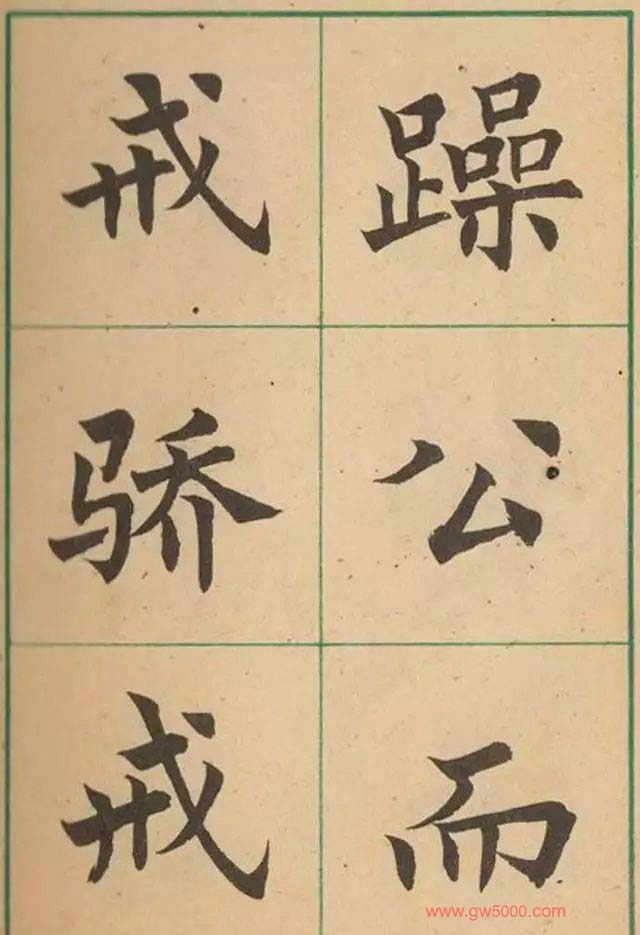 戒骄戒
躁公而
www.gw5000.com